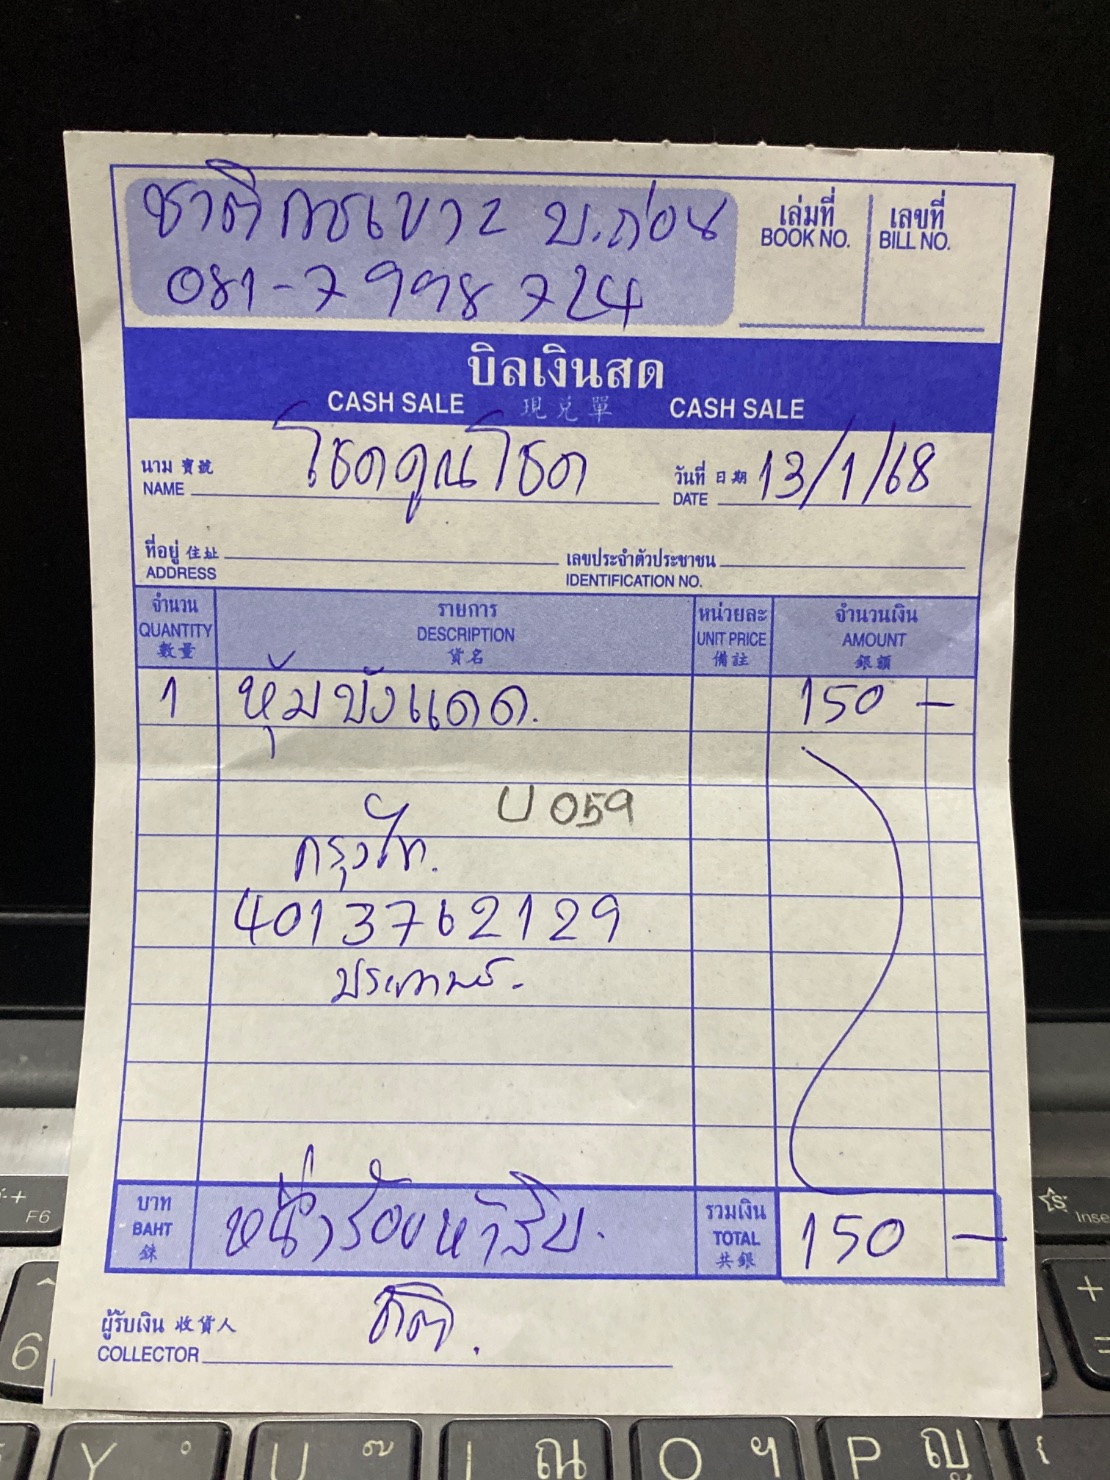 ชาติการเบาะ บ.ถ่อน
081-7998724
เล่มที่ เลขที่
BOOK NO. BILL NO.
บิลเงินสด
CASH SALE 現兌單 CASH SALE
นาม 寶號 โชคคูณโชค วันที่ 日期 13/1/68
NAME DATE
ที่อยู่ 住址 เลขประจำตัวประชาชน
ADDRESS IDENTIFICATION NO.
จำนวน รายการ หน่วยละ จำนวนเงิน
QUANTITY DESCRIPTION UNIT PRICE AMOUNT
數量 貨名 備註 銀額
1 หุ้มบังแดด. 150 -
U 059
กรุงไท.
4013762129
บาท หนึ่งร้อยห้าสิบ. รวมเงิน 150 -
BAHT TOTAL
銖 共銀
ผู้รับเงิน 收貨人 ชาติ.
COLLECTOR
F6
Inse
6
Y U I ณ O ฯ P ญ {
+
=